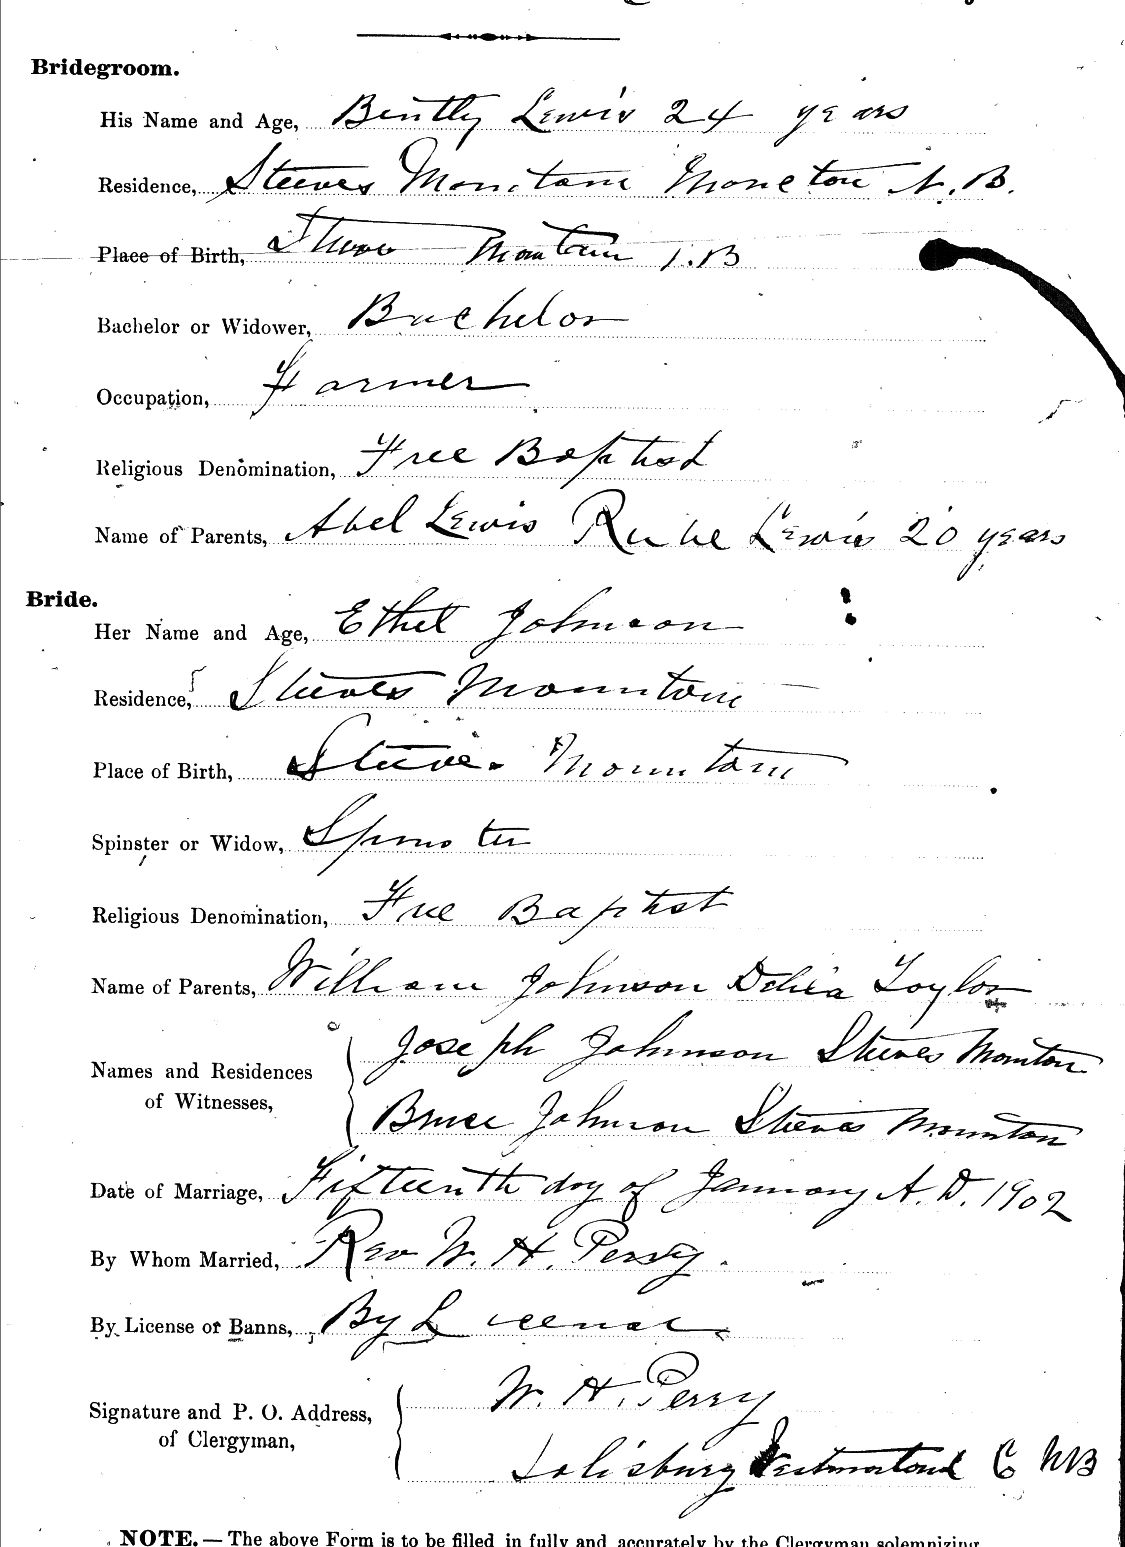 Bridegroom.
His Name and Age, Bently Lewis 24 years
Residence, Steeves Mountain Moncton N.B.
Place of Birth, Steeves Mountain N.B
Bachelor or Widower, Bachelor
Occupation, Farmer
Religious Denomination, Free Baptist
Name of Parents, Abel Lewis Rube Lewis 20 years
Bride.
Her Name and Age, Ethel Johnson
Residence, Steeves Mountain
Place of Birth, Steeves Mountain
Spinster or Widow, Spinster
Religious Denomination, Free Baptist
Name of Parents, William Johnson Delia Taylor
Joseph Johnson Steeves Mountain
Names and Residences
of Witnesses,
Bruce Johnson Steeves Mountain
Date of Marriage, Fifteenth day of January A.D. 1902
By Whom Married, Rev W. H. Perry.
By License or Banns, By License
W. H. Perry
Signature and P. O. Address,
of Clergyman,
Salisbury Westmorland Co NB
NOTE.— The above Form is to be filled in fully and accurately by the Clergyman solemnizing